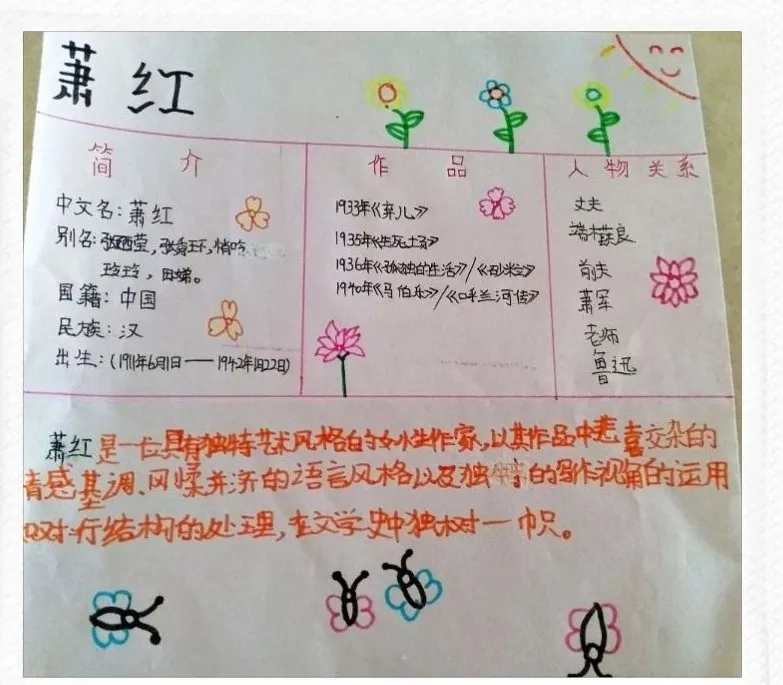 萧红
简介
中文名：萧红
别名：张迺莹，张秀环，悄吟，
玲玲，田娣。
国籍：中国
民族：汉
出生：(1911年6月1日——1942年1月22日)
作品
1933年《弃儿》
1935年《生死场》
1936年《孤独的生活》/《砂粒》
1940年《马伯乐》/《呼兰河传》
人物关系
丈夫
端木蕻良
前夫
萧军
老师
鲁迅
萧红是一位具有独特艺术风格的女性作家，以其作品中悲喜交杂的
情感基调、风揉并济的语言风格以及独的写作视角的运用
对行结构的处理，在文学史中独树一帜。